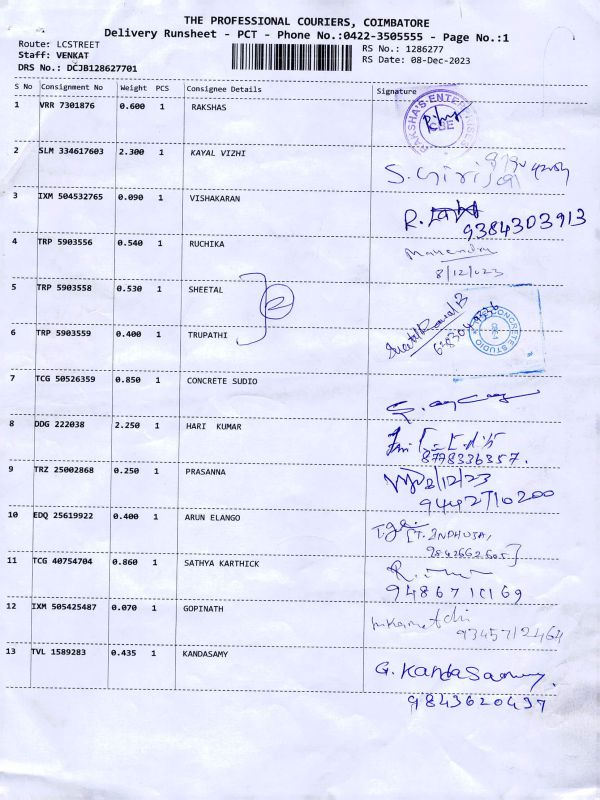 THE PROFESSIONAL COURIERS, COIMBATORE
Delivery Runsheet - PCT - Phone No.:0422-3505555 - Page No.:1
Route: LCSTREET
Staff: VENKAT
DRS No.: DCJB128627701
RS No.: 1286277
RS Date: 08-Dec-2023
S No Consignment No Weight PCS Consignee Details Signature
1 VRR 7301876 0.600 1 RAKSHAS
RAKSHA'S ENTERPRISES
CBE
2 SLM 334617603 2.300 1 KAYAL VIZHI
S. Girija
3 IXM 504532765 0.090 1 VISHAKARAN
R.
9384303913
4 TRP 5903556 0.540 1 RUCHIKA
Mahendra
8/12/023
5 TRP 5903558 0.530 1 SHEETAL
2
6 TRP 5903559 0.400 1 TRUPATHI
CONCRETE STUDIO
7 TCG 50526359 0.850 1 CONCRETE SUDIO
8 DDG 222038 2.250 1 HARI KUMAR
8778336357.
9 TRZ 25002868 0.250 1 PRASANNA
8/12/23
9442710200
10 EDQ 25619922 0.400 1 ARUN ELANGO
[T. INDHUJA,
11 TCG 40754704 0.860 1 SATHYA KARTHICK
R.
9486710169
12 IXM 505425487 0.070 1 GOPINATH
9345712464
13 TVL 1589283 0.435 1 KANDASAMY
G. KandaSamy.
9843620437